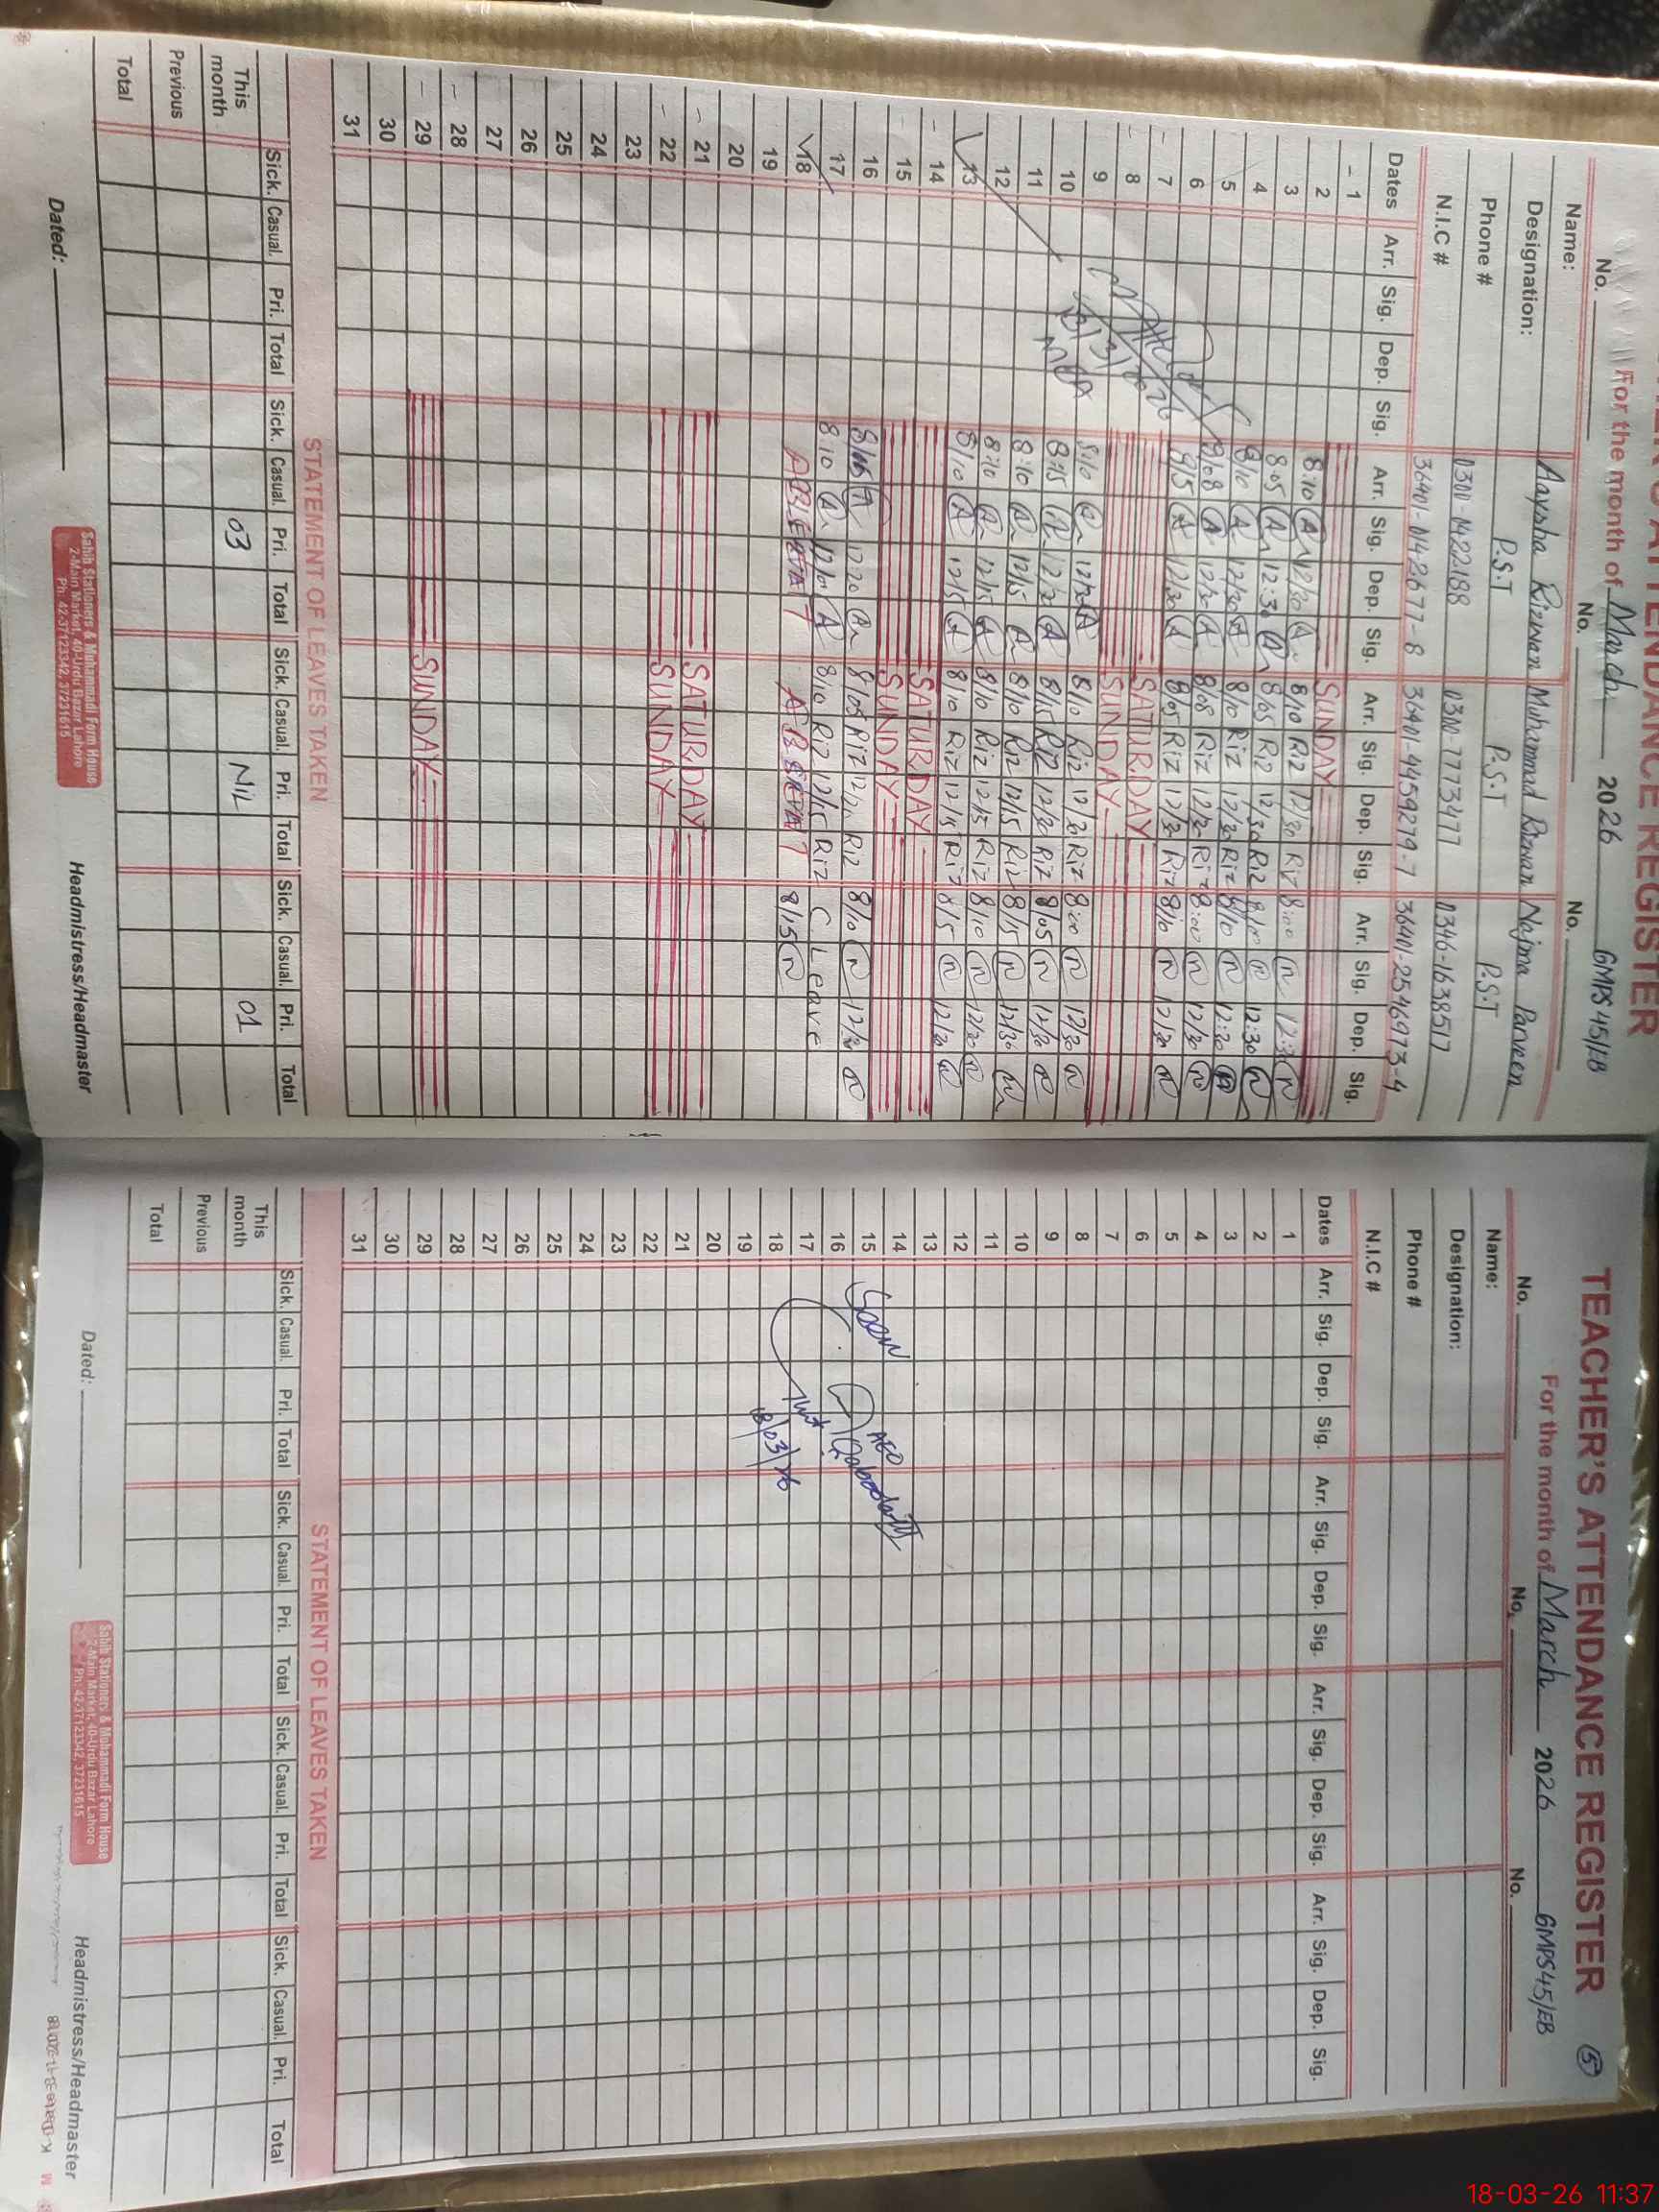 TEACHER'S ATTENDANCE REGISTER
For the month of March 2026 GMPS 45/EB
No. No. No.
Name: Aaysha Rizwan Muhammad Rizwan Najma Parveen
Designation: P.S.T P.S.T P.S.T
Phone # 0300-1422188 0300-7773477 0346-1638517
N.I.C # 36401-0142677-8 36401-4459279-7 36401-2546973-4
Dates Arr. Sig. Dep. Sig. Arr. Sig. Dep. Sig. Arr. Sig. Dep. Sig. Arr. Sig. Dep. Sig.
1 SUNDAY
2 8:10 12/30 8/10 Riz 12/30 Riz 8:00
3 8:05 12:30 8/05 Riz 12/30 Riz 8/10 12:30
4 8/10 12/30 8/10 Riz 12/30 Riz 8/10 12:30
5 8/08 12/30 8/08 Riz 12/30 Riz 8:00 12/30
6 8/05 12/30 8/05 Riz 12/30 Riz 8/10 12/30
7 SATURDAY
8 SUNDAY
9 8:10 12/20 8/10 Riz 12/20 Riz 8:00 12/30
10 8:15 12/20 8/15 Riz 12/20 Riz 8/05 12/30
11 8:10 12/15 8/10 Riz 12/15 Riz 8/15 12/30
12 8:10 12/15 8/10 Riz 12/15 Riz 8/10 12/30
13 8/10 12/15 8/10 Riz 12/15 Riz 8/15 12/20
14 SATURDAY
15 SUNDAY
16 8/05 12:20 8/05 Riz Riz 8/10 12/20
17 8:10 8/10 Riz 12/15 Riz C. Leave
18 8/15
19
20
21 SATURDAY
22 SUNDAY
23
24
25
26
27
28
29 SUNDAY
30
31
STATEMENT OF LEAVES TAKEN
Sick. Casual. Pri. Total Sick. Casual. Pri. Total Sick. Casual. Pri. Total Sick. Casual. Pri. Total
This month 03 NIL 01
Previous
Total
Dated: Headmistress/Headmaster
Sahib Stationers & Muhammadi Form House
2-Main Market, 40-Urdu Bazar Lahore
Ph: 42-37123342, 37231615
TEACHER'S ATTENDANCE REGISTER 5
For the month of March 2026 GMPS45/EB
No. No. No.
Name:
Designation:
Phone #
N.I.C #
Dates Arr. Sig. Dep. Sig. Arr. Sig. Dep. Sig. Arr. Sig. Dep. Sig. Arr. Sig. Dep. Sig.
1
2
3
4
5
6
7
8
9
10
11
12
13
14
15 Seen AEO
16
17
18 18/03/26
19
20
21
22
23
24
25
26
27
28
29
30
31
STATEMENT OF LEAVES TAKEN
Sick. Casual. Pri. Total Sick. Casual. Pri. Total Sick. Casual. Pri. Total Sick. Casual. Pri. Total
This month
Previous
Total
Dated: Headmistress/Headmaster
Sahib Stationers & Muhammadi Form House
2-Main Market, 40-Urdu Bazar Lahore
Ph: 42-37123342, 37231615
18-03-26 11:37